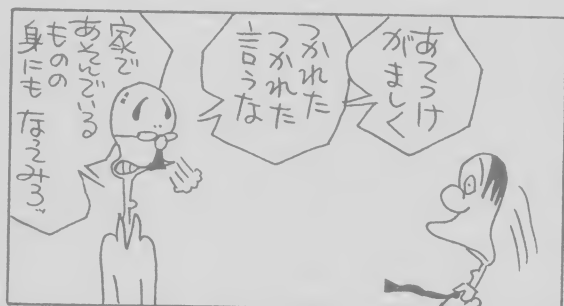 あてつけ
がましく
つかれた
つかれた
言うな
家で
あそんでいる
ものの
身にも なってみろ。